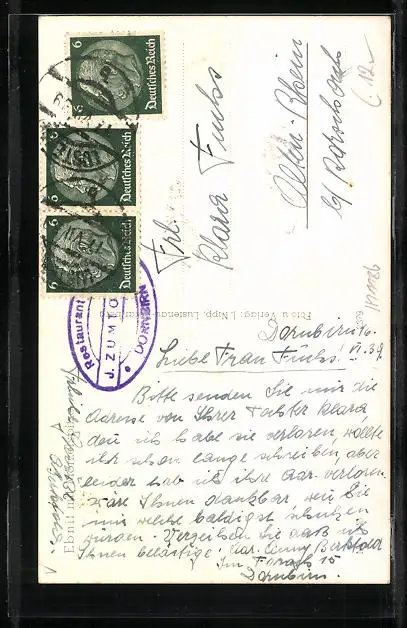 6 Deutsches Reich
6 Deutsches Reich
6 Deutsches Reich
Frl.
Klara Fuchs
Alten-Rhein
b/ Rorschach
12.-
Restaurant
J. ZUMTO
DORNBIRN
Foto u. Verlag: J. Nipp, Lustenau
Dornbirn 16.
VI. 39
Liebe Frau Fuchs!
Bitte senden Sie mir die
Adresse von Ihrer Tochter Klara,
den ich habe sie verloren, wollte
ihr schon lange schreiben, aber
leider hab ich ihre Adr. verloren.
Wäre Ihnen dankbar, wen Sie
mir welche baldigst schicken
würden. Verzeihen Sie daß ich
Ihnen belästige. Adr. Anny
Im 15
Dornbirn.